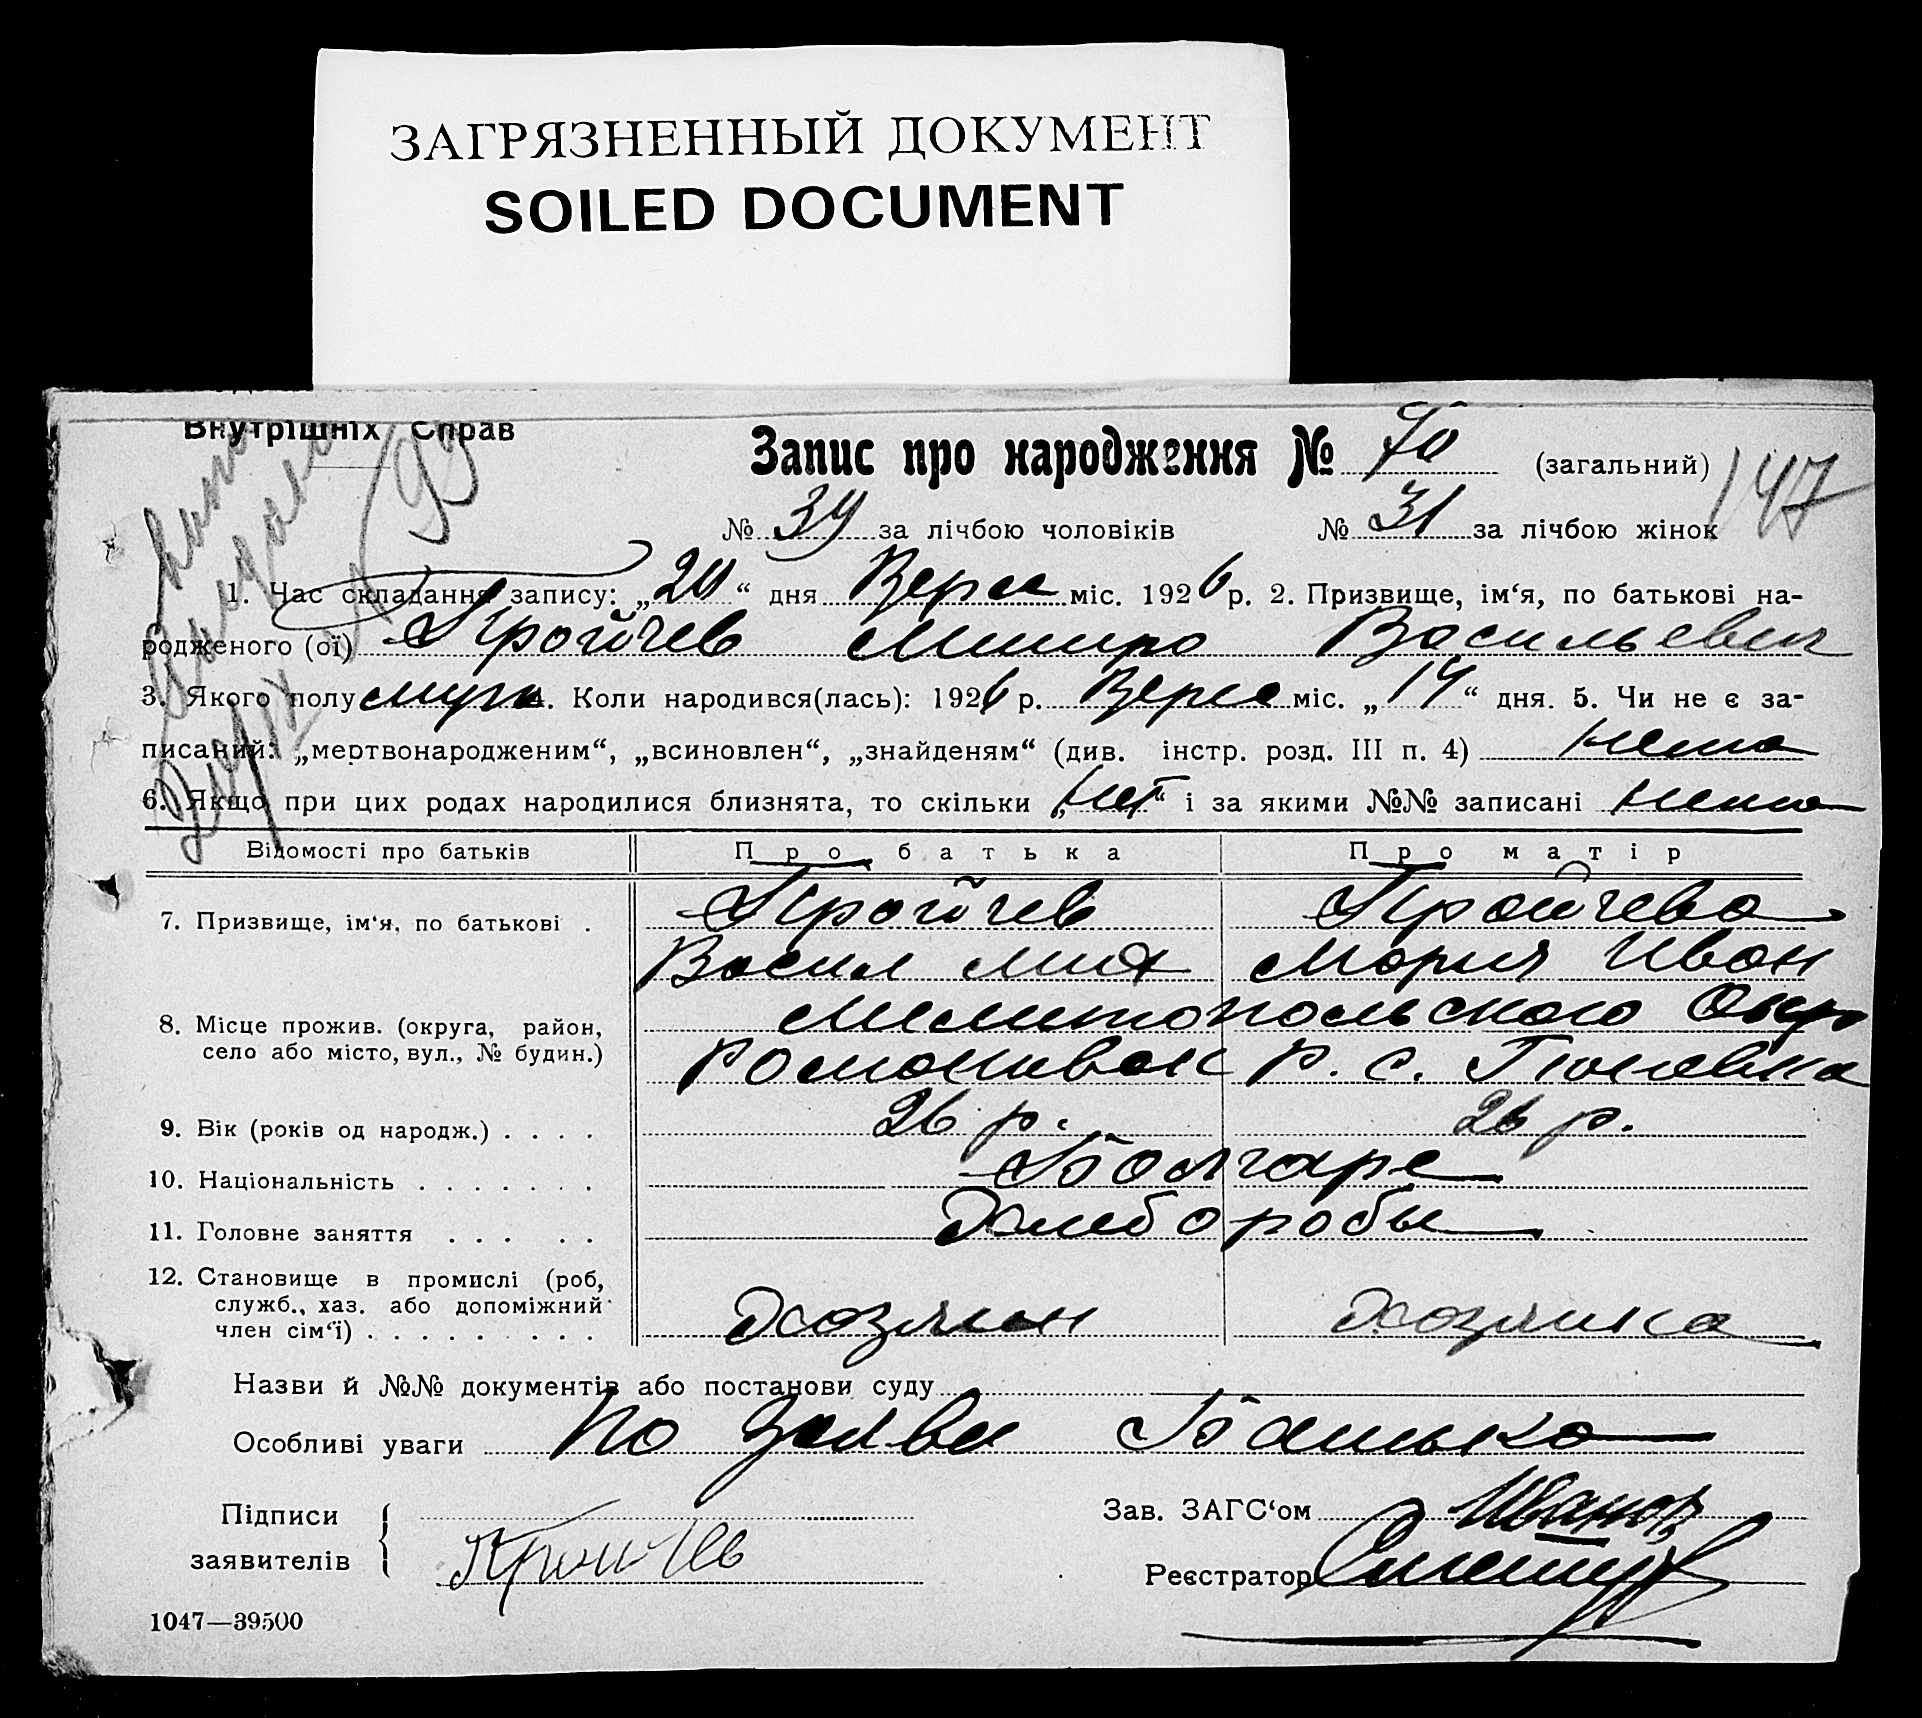 ЗАГРЯЗНЕННЫЙ ДОКУМЕНТ
SOILED DOCUMENT
Внутрішніх Справ
Запис про народження № 70 (загальний) 147
№ 39 за лічбою чоловіків № 31 за лічбою жінок
1. Час складання запису: „20“ дня Верес міс. 1926 р. 2. Призвище, ім‘я, по батькові на-
родженого (ої) Тройчев Васильевич
3. Якого полу муж 4. Коли народився(лась): 1926 р. Верес міс. „14“ дня. 5. Чи не є за-
писаний: „мертвонародженим“, „всиновлен“, „знайденям“ (див. інстр. розд. III п. 4) нема
6. Якщо при цих родах народилися близнята, то скільки „нет“ і за якими №№ записані нема
Відомості про батьків Про батька Про матір
7. Призвище, ім‘я, по батькові . Тройчев Тройчева
Васил Мих Мария Иван
8. Місце прожив. (округа, район, Мелитопольского Окр
село або місто, вул., № будин.) Романивск Р. с. Гюновка
9. Вік (років од народж.) . . . . 26 р. 26 р.
10. Національність . . . . . . . Болгаре
11. Головне заняття . . . . . Хлеборобы
12. Становище в промислі (роб,
служб., хаз. або допоміжний
член сім‘ї) . . . . . . . . . Хозяин Хозяика
Назви й №№ документів або постанови суду
Особливі уваги По Заяви Батька
Підписи Зав. ЗАГС‘ом Иванов
заявителів Тройчев Реєстратор
1047—39500